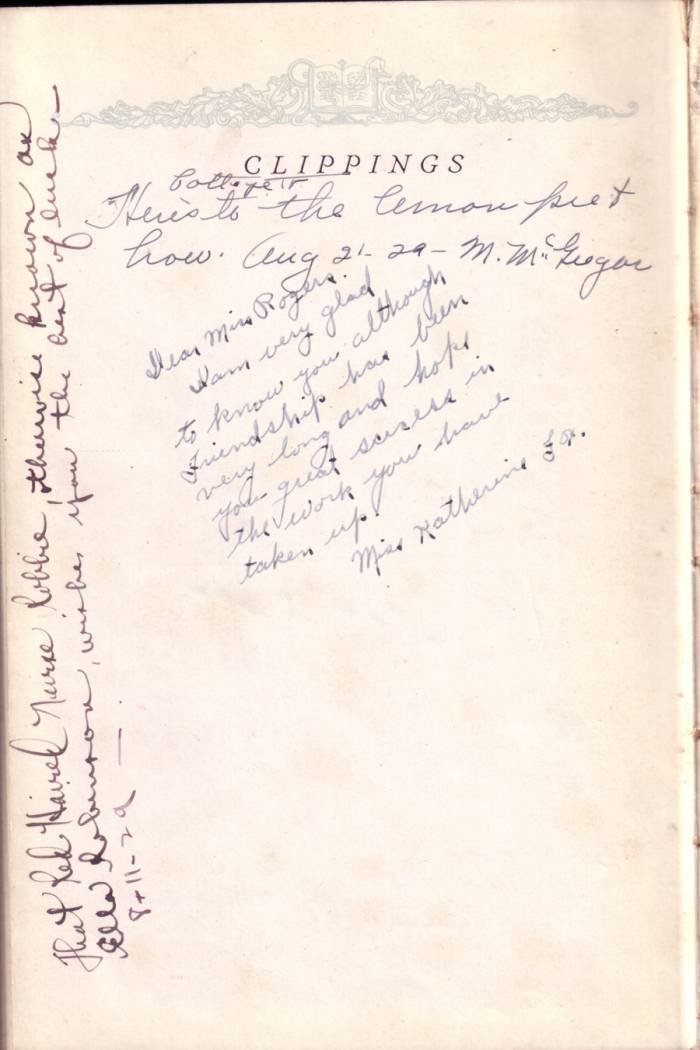 CLIPPINGS
Here's to the lemon pie &
how. Aug 21-29- M. McGregor
Dear Miss Rogers.
I am very glad
to know you although
Friendship has been
very long and hope
you great sucsess in
the work you have
taken up.
Miss Katherine
That Red Haired Nurse Robbie, otherwise known as
Ella Robinson, wishes you the best of luck-
8-11-29 —